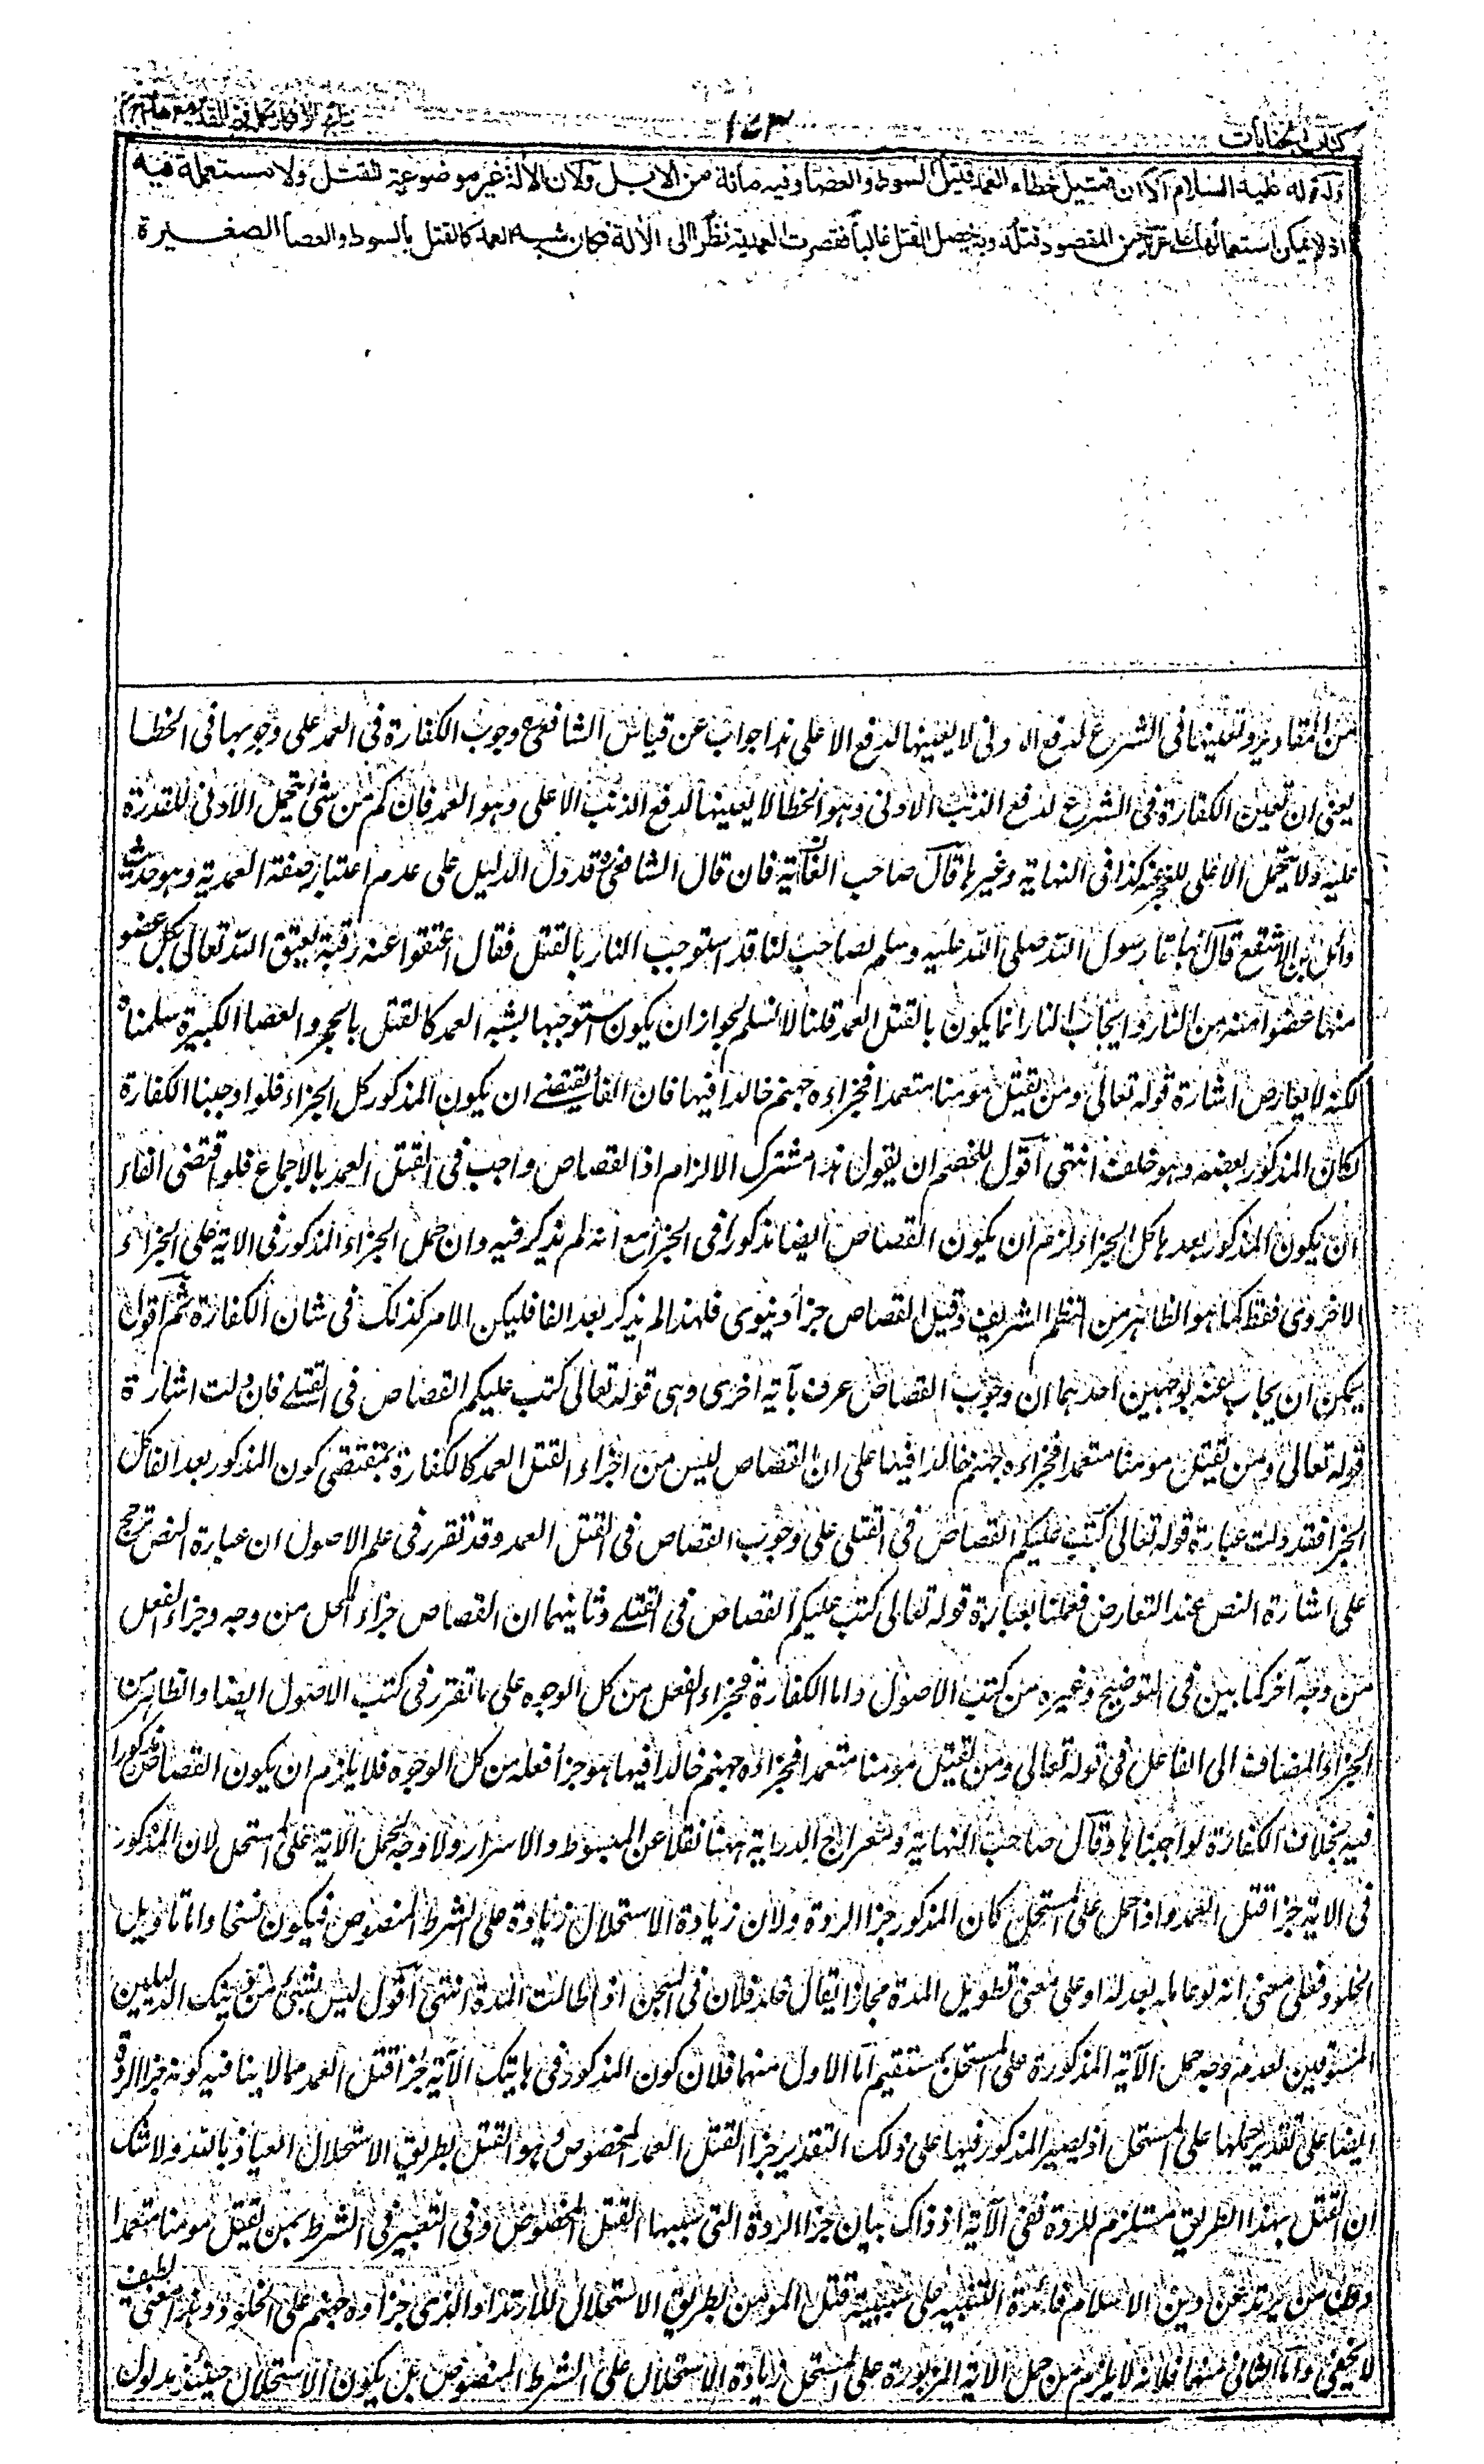 كتاب الجنايات
١٤٣
نتائج الأفكار تكملة فتح القدير مع هداية
ولنا قوله عليه السلام الا ان قتيل خطاء العمد قتيل السوط والعصا وفيه مائة من الابل ولان الالة غير موضوعة للقتل ولا مستعملة فيه
اذ لا يمكن استعمالها على غرة من المقصود قتله وبه يحصل القتل غالبا فقصرت العمدية نظرا الى الالة فكان شبه العمد كالقتل بالسوط والعصا الصغيرة
من المقادير وتعينها فى الشرع لدفع الادنى لا يعينها لدفع الاعلى هذا جواب عن قياس الشافعى رح وجوب الكفارة فى العمد على وجوبها فى الخطا
يعنى ان تعين الكفارة فى الشرع لدفع الذنب الادنى وهو الخطا لا يعينها لدفع الذنب الاعلى وهو العمد فان كم من شئ يتحمل الادنى للقدرة
عليه ولا يتحمل الاعلى للعجز عنه كذا فى النهاية وغيرها قال صاحب العناية فان قال الشافعى رح قد دل الدليل على عدم اعتبار صفة العمدية وهو حديث
واثلة بن الاسقع قال اتينا رسول الله صلى الله عليه وسلم لصاحب لنا قد استوجب النار بالقتل فقال اعتقوا عنه رقبة يعتق الله تعالى بكل عضو
منها عضوا منه من النار وايجاب النار انما يكون بالقتل العمد قلنا لا نسلم لجواز ان يكون استوجبها بشبه العمد كالقتل بالحجر والعصا الكبيرة سلمناه
لكنه لا يعارض اشارة قوله تعالى ومن يقتل مومنا متعمدا فجزاءه جهنم خالدا فيها فان الفاء يقتضى ان يكون المذكور كل الجزاء فلو اوجبنا الكفارة
لكان المذكور بعضه وهو خلف انتهى اقول للخصم ان يقول هذا مشترك الالزام اذ القصاص واجب فى القتل العمد بالاجماع فلو اقتضى الفاء
ان يكون المذكور بعدها كل الجزاء لزم ان يكون القصاص ايضا مذكورا فى الجزاء مع انه لم يذكر فيه وان حمل الجزاء المذكور فى الاية على الجزاء
الاخروى فقط كما هو الظاهر من النظم الشريف وقيل القصاص جزاء دنيوى فلهذا لم يذكر بعد الفا فليكن الامر كذلك فى شان الكفارة ثم اقول
يمكن ان يجاب عنه بوجهين احدهما ان وجوب القصاص عرف بآية اخرى وهى قوله تعالى كتب عليكم القصاص فى القتلى فان دلت اشارة
قوله تعالى ومن يقتل مومنا متعمدا فجزاءه جهنم خالدا فيها على ان القصاص ليس من اجزاء القتل العمد كالكفارة بمقتضى كون المذكور بعد الفا كل
الجزا فقد دلت عبارة قوله تعالى كتب عليكم القصاص فى القتلى على وجوب القصاص فى القتل العمد وقد تقرر فى علم الاصول ان عبارة النص ترجح
على اشارة النص عند التعارض فعملنا بعبارة قوله تعالى كتب عليكم القصاص فى القتلى وثانيهما ان القصاص جزاء المحل من وجه وجزاء الفعل
من وجه آخر كما بين فى التوضيح وغيره من كتب الاصول واما الكفارة فجزاء الفعل من كل الوجوه على ما تقرر فى كتب الاصول ايضا والظاهر من
الجزاء المضاف الى الفاعل فى قوله تعالى ومن يقتل مومنا متعمدا فجزاءه جهنم خالدا فيها هو جزاء فعله من كل الوجوه فلا يلزم ان يكون القصاص مذكورا
فيه بخلاف الكفارة لو اوجبناها وقال صاحب النهاية ومعراج الدراية ههنا نقلا عن المبسوط والاسرار ولا وجه لحمل الآية على المستحل لان المذكور
فى الاية جزا قتل العمد واذا حمل على المستحل كان المذكور جزا الردة ولان زيادة الاستحلال زيادة على الشرط المنصوص فيكون نسخا واما تاويل
الخلود فعلى معنى انه لو عامله بعدله او على معنى تطويل المدة مجازا يقال خلد فلان فى السجن اذا طالت المدة انتهى اقول ليس بشئ من ذينك الدليلين
المسوقين لعدم وجه حمل الآية المذكورة على المستحل بمستقيم اما الاول منهما فلان كون المذكور فى هاتيك الآية جزا قتل العمد مما لا ينافيه كونه جزا الردة
ايضا على تقدير حملها على المستحل اذ يصير المذكور فيها على ذلك التقدير جزا القتل العمد المخصوص وهو القتل بطريق الاستحلال العياذ بالله ولا شك
ان القتل بهذا الطريق مستلزم للردة ففى الآية اذ ذاك بيان جزا الردة التى سببها القتل المخصوص وفى التعبير فى الشرط بمن يقتل مومنا متعمدا
دون من يرتد عن دين الاسلام فائدة التنبيه على سببية قتل المومن بطريق الاستحلال للارتداد الذى جزاوه جهنم على الخلود وهذا معنى لطيف
لا يخفى واما الثانى منهما فلانه لا يلزم من حمل الاية المزبورة على المستحل زيادة الاستحلال على الشرط المنصوص بل يكون الاستحلال حينئذ مدلول